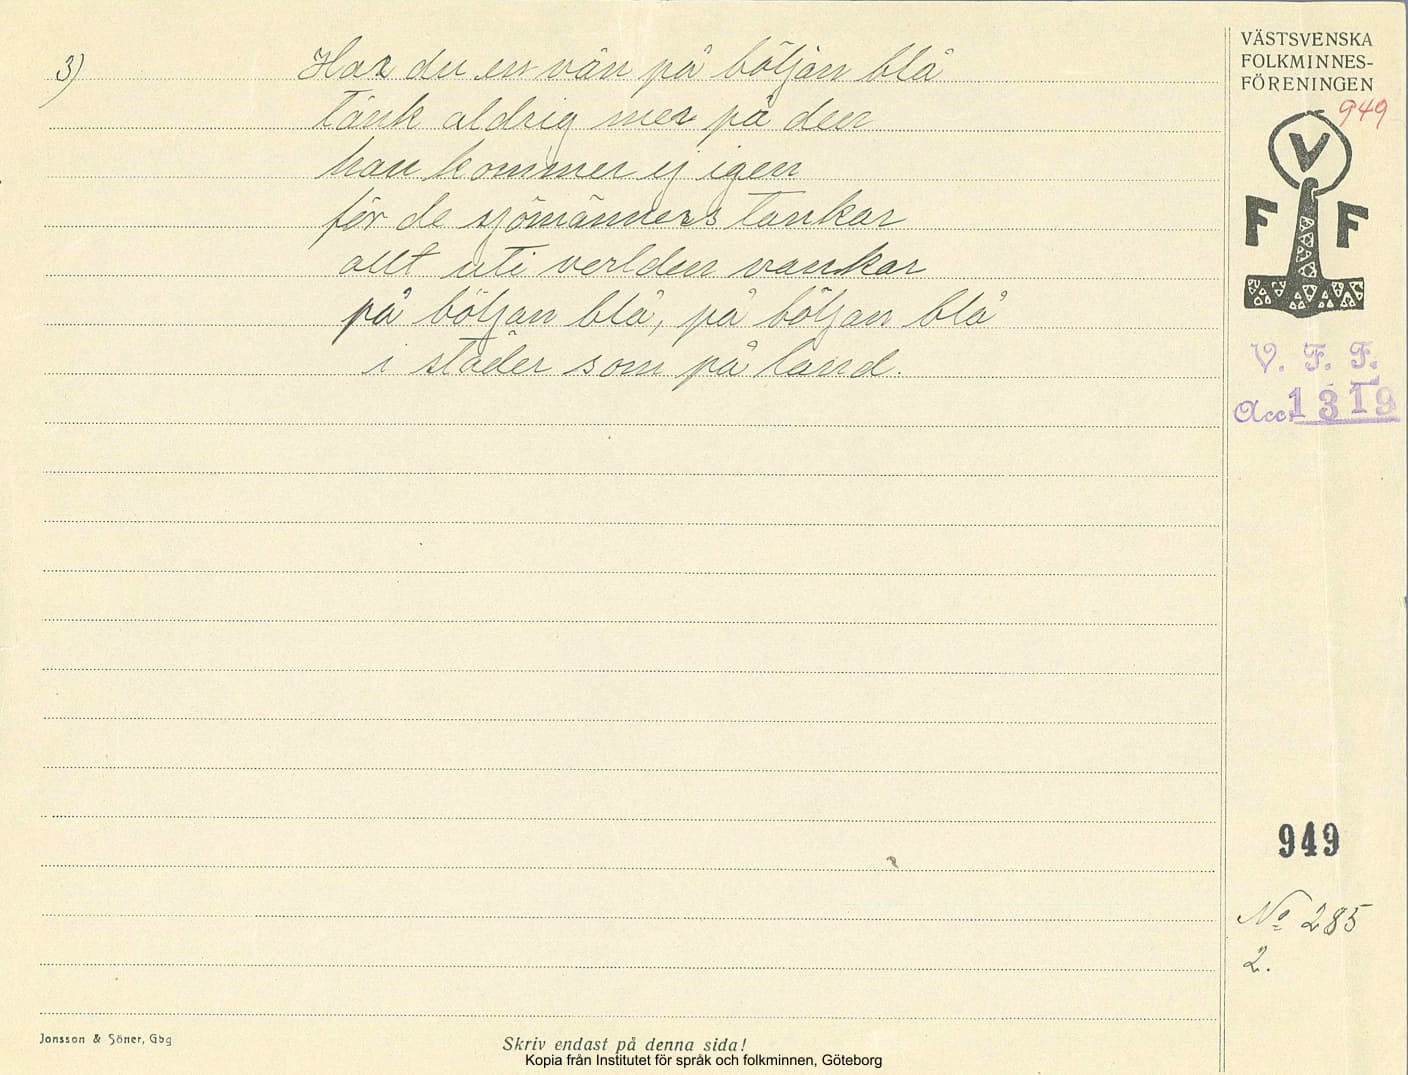 3) Har du en vän på böljan blå
tänk aldrig mer på den
han kommer ej igen
för de sjömänners tankar
allt uti verlden vankar
på böljan blå, på böljan blå
i städer som på land.
VÄSTSVENSKA
FOLKMINNES-
FÖRENINGEN
949
V
F F
V. F. F.
Acc. 1319
949
No 285
2.
Jonsson & Söner, Gbg
Skriv endast på denna sida!
Kopia från Institutet för språk och folkminnen, Göteborg